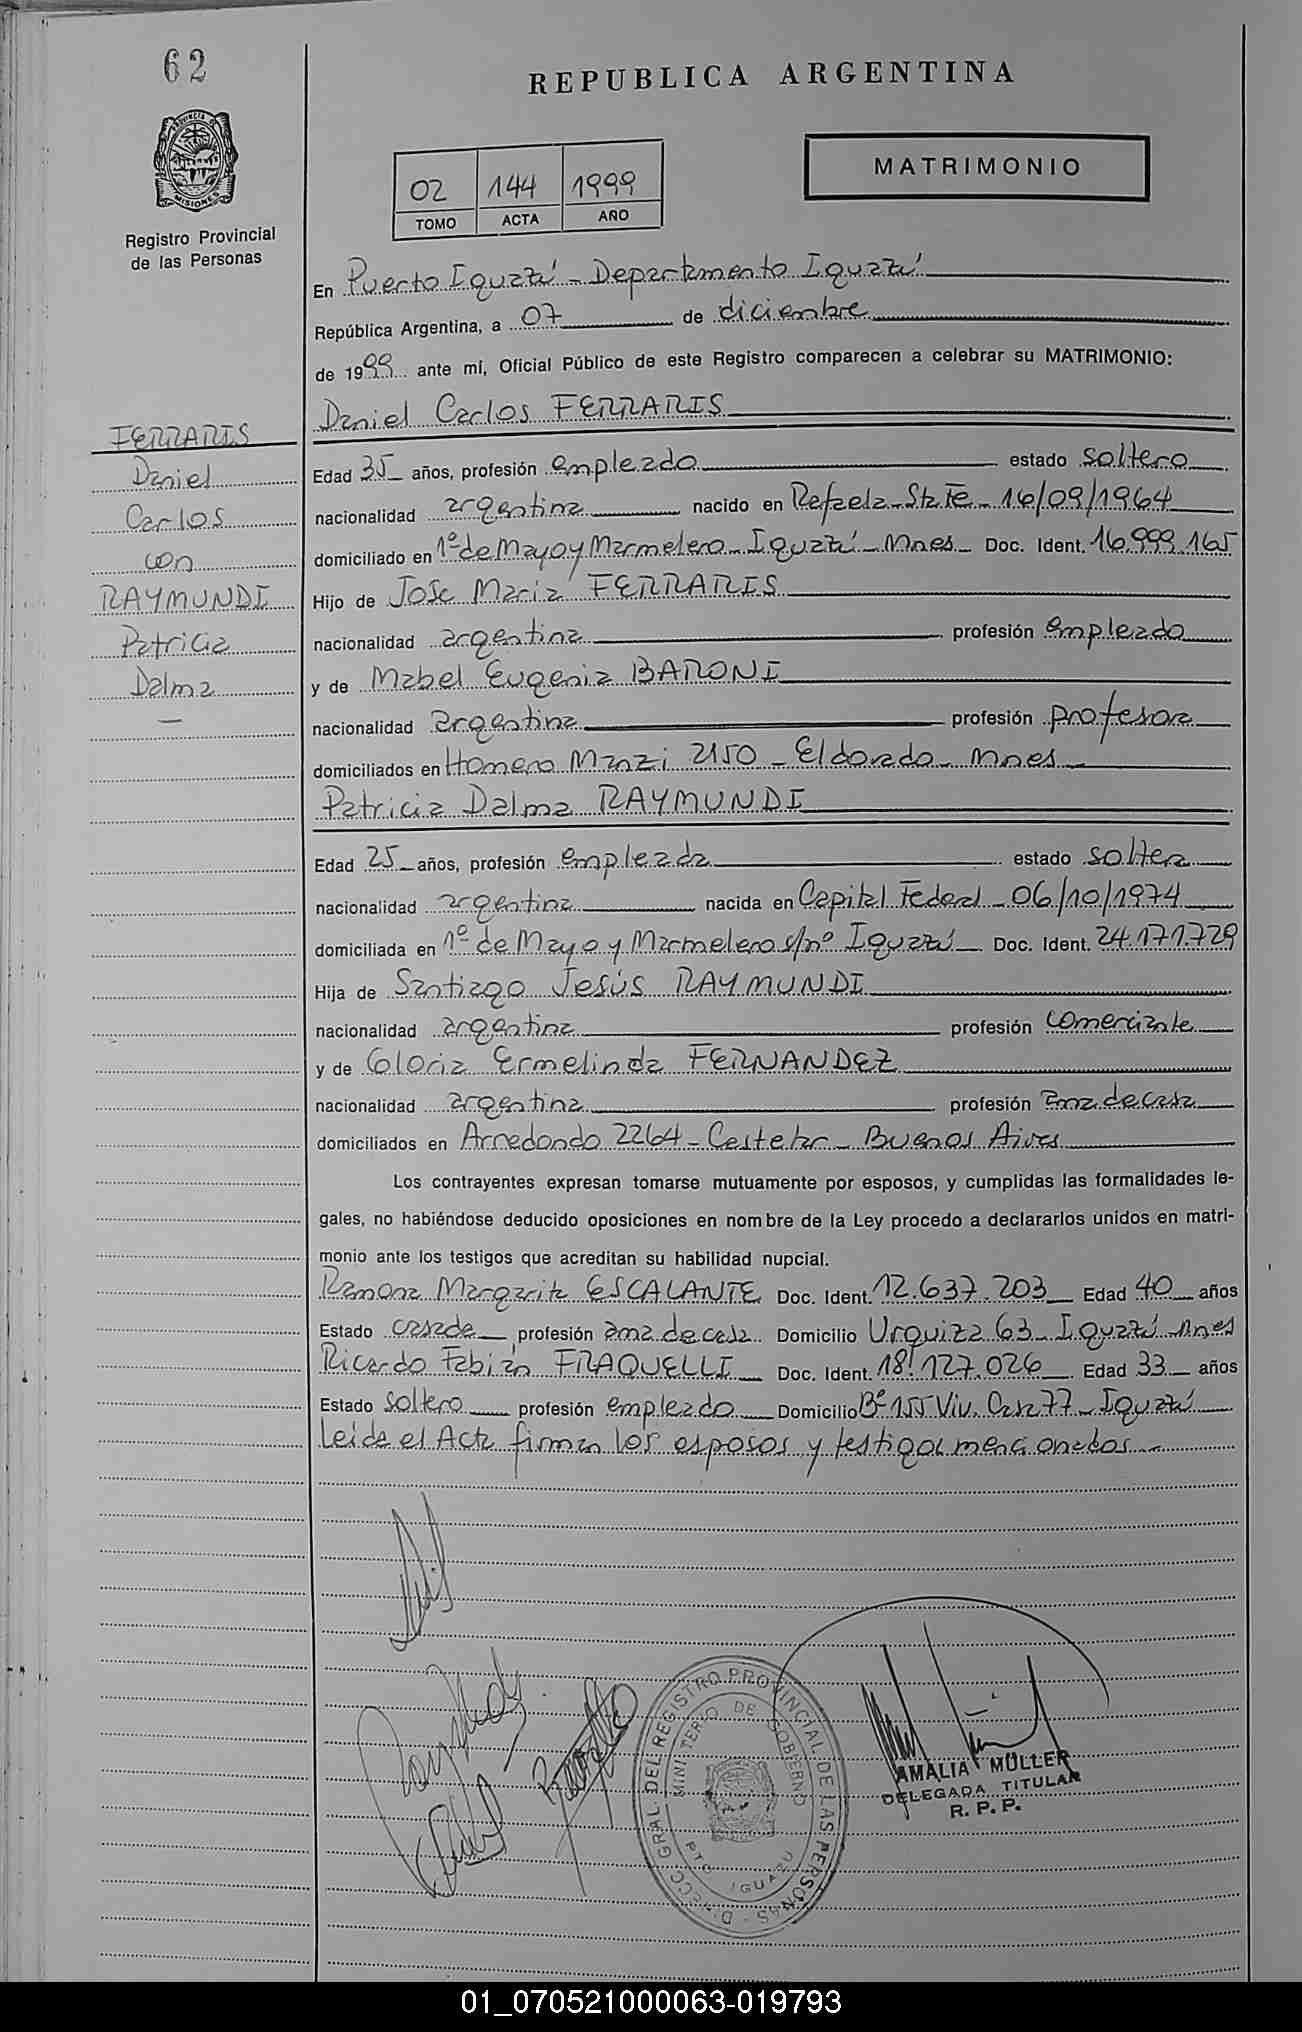 62
REPUBLICA ARGENTINA
PROVINCIA DE
MISIONES
Registro Provincial
de las Personas
02 144 1999
TOMO ACTA AÑO
MATRIMONIO
En Puerto Iguazú - Departamento Iguazú
República Argentina, a 07 de diciembre
de 1999 ante mí, Oficial Público de este Registro comparecen a celebrar su MATRIMONIO:
Daniel Carlos FERRARIS
FERRARIS
Daniel
Carlos
con
RAYMUNDI
Patricia
Dalma
—
Edad 35 años, profesión empleado estado soltero
nacionalidad argentina nacido en Rafaela - Sta Fe - 16/09/1964
domiciliado en 1º de Mayo y Marmelero - Iguazú - Mnes - Doc. Ident. 16.999.165
Hijo de José Maria FERRARIS
nacionalidad argentina profesión empleado
y de Mabel Eugenia BARONI
nacionalidad argentina profesión profesora
domiciliados en Homero Manzi 2150 - Eldorado - Mnes -
Patricia Dalma RAYMUNDI
Edad 25 años, profesión empleada estado soltera
nacionalidad argentina nacida en Capital Federal - 06/10/1974
domiciliada en 1º de Mayo y Marmelero s/nº Iguazú - Doc. Ident. 24.171.729
Hija de Santiago Jesús RAYMUNDI
nacionalidad argentina profesión comerciante
y de Gloria Ermelinda FERNANDEZ
nacionalidad argentina profesión ama de casa
domiciliados en Arredondo 2264 - Castelar - Buenos Aires
Los contrayentes expresan tomarse mutuamente por esposos, y cumplidas las formalidades le-
gales, no habiéndose deducido oposiciones en nombre de la Ley procedo a declararlos unidos en matri-
monio ante los testigos que acreditan su habilidad nupcial.
Ramona Margarita ESCALANTE Doc. Ident. 12.637.203 Edad 40 años
Estado casada profesión ama de casa Domicilio Urquiza 63 - Iguazú - Mnes
Ricardo Fabián FRAQUELLI Doc. Ident. 18.127.026 Edad 33 años
Estado soltero profesión empleado Domicilio Bº 155 Viv. Casa 77 - Iguazú
Leida el Acta firman los esposos y testigos mencionados -
DIRECC. GRAL. DEL REGISTRO PROVINCIAL DE LAS PERSONAS
MINISTERIO DE GOBERNO
PTO. IGUAZU
AMALIA MÜLLER
DELEGADA TITULAR
R. P. P.
01_070521000063-019793